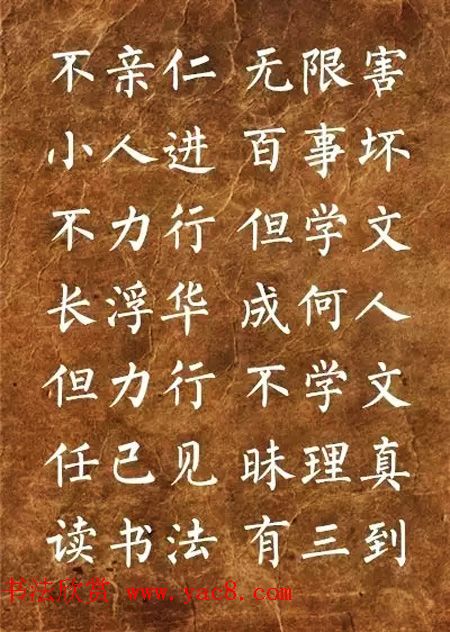 不亲仁 无限害
小人进 百事坏
不力行 但学文
长浮华 成何人
但力行 不学文
任己见 昧理真
读书法 有三到
书法欣赏 www.yac8.com